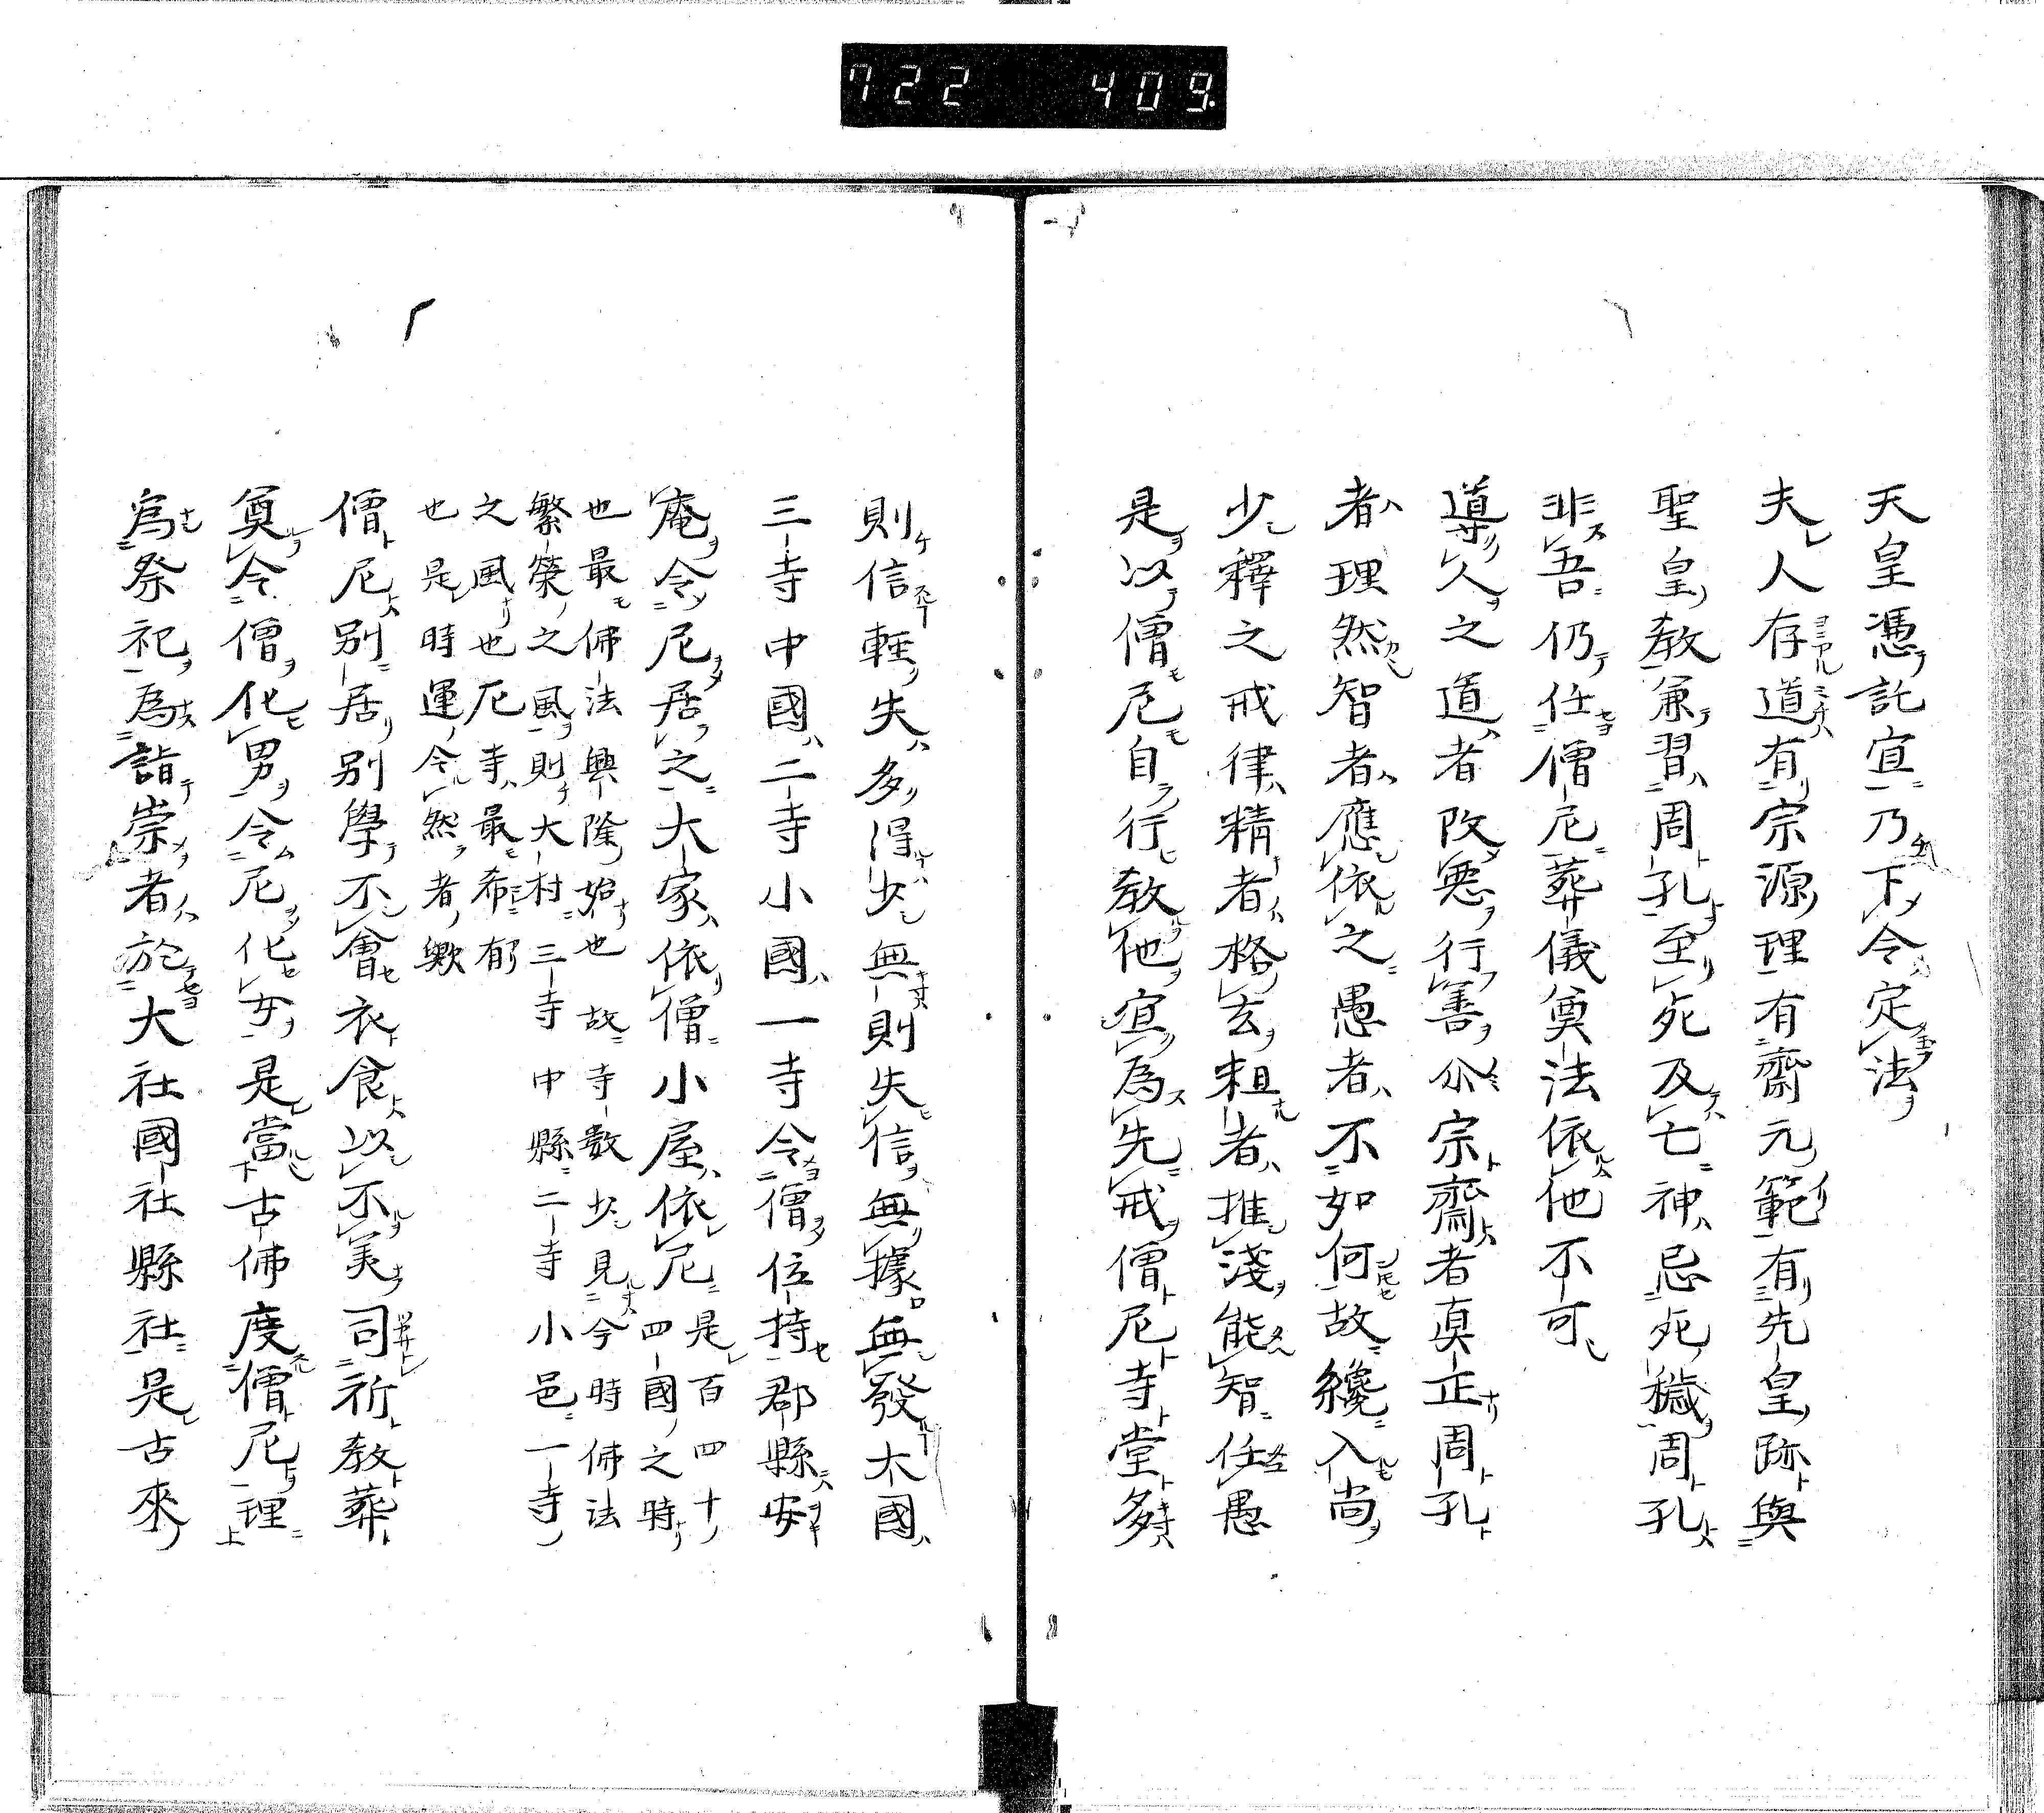 722 409
天皇憑託宣乃下令定法
夫人存道有宗源理有齋元範有先皇跡與
聖皇教兼習周孔至死及亡神忌死穢周孔
非吾仍任僧尼葬儀奠法依他不可
導人之道者改惡行善尒宗齋者真正周孔
者理然智者應依之愚者不如何故纔入尚
少釋之戒律精者格玄粗者推淺能智任愚
是以僧尼自行教他宜為先戒僧尼寺堂多
則信輕失多得少無則失信無據無發大國
三寺中國二寺小國一寺令僧位持郡縣安
庵令尼居之大家依僧小屋依尼
是百四十
四國之時
也最佛法興隆始也故寺數少見今時佛法
繁榮之風則大村三寺中縣二寺小邑一寺
之風也尼寺最希有
也是時運令然者歟
僧尼別居別學不會衣食以不美司祈教葬
奠令僧化男令尼化女是當古佛度僧尼理
為祭祀為詣崇者於大社國社縣社是古來